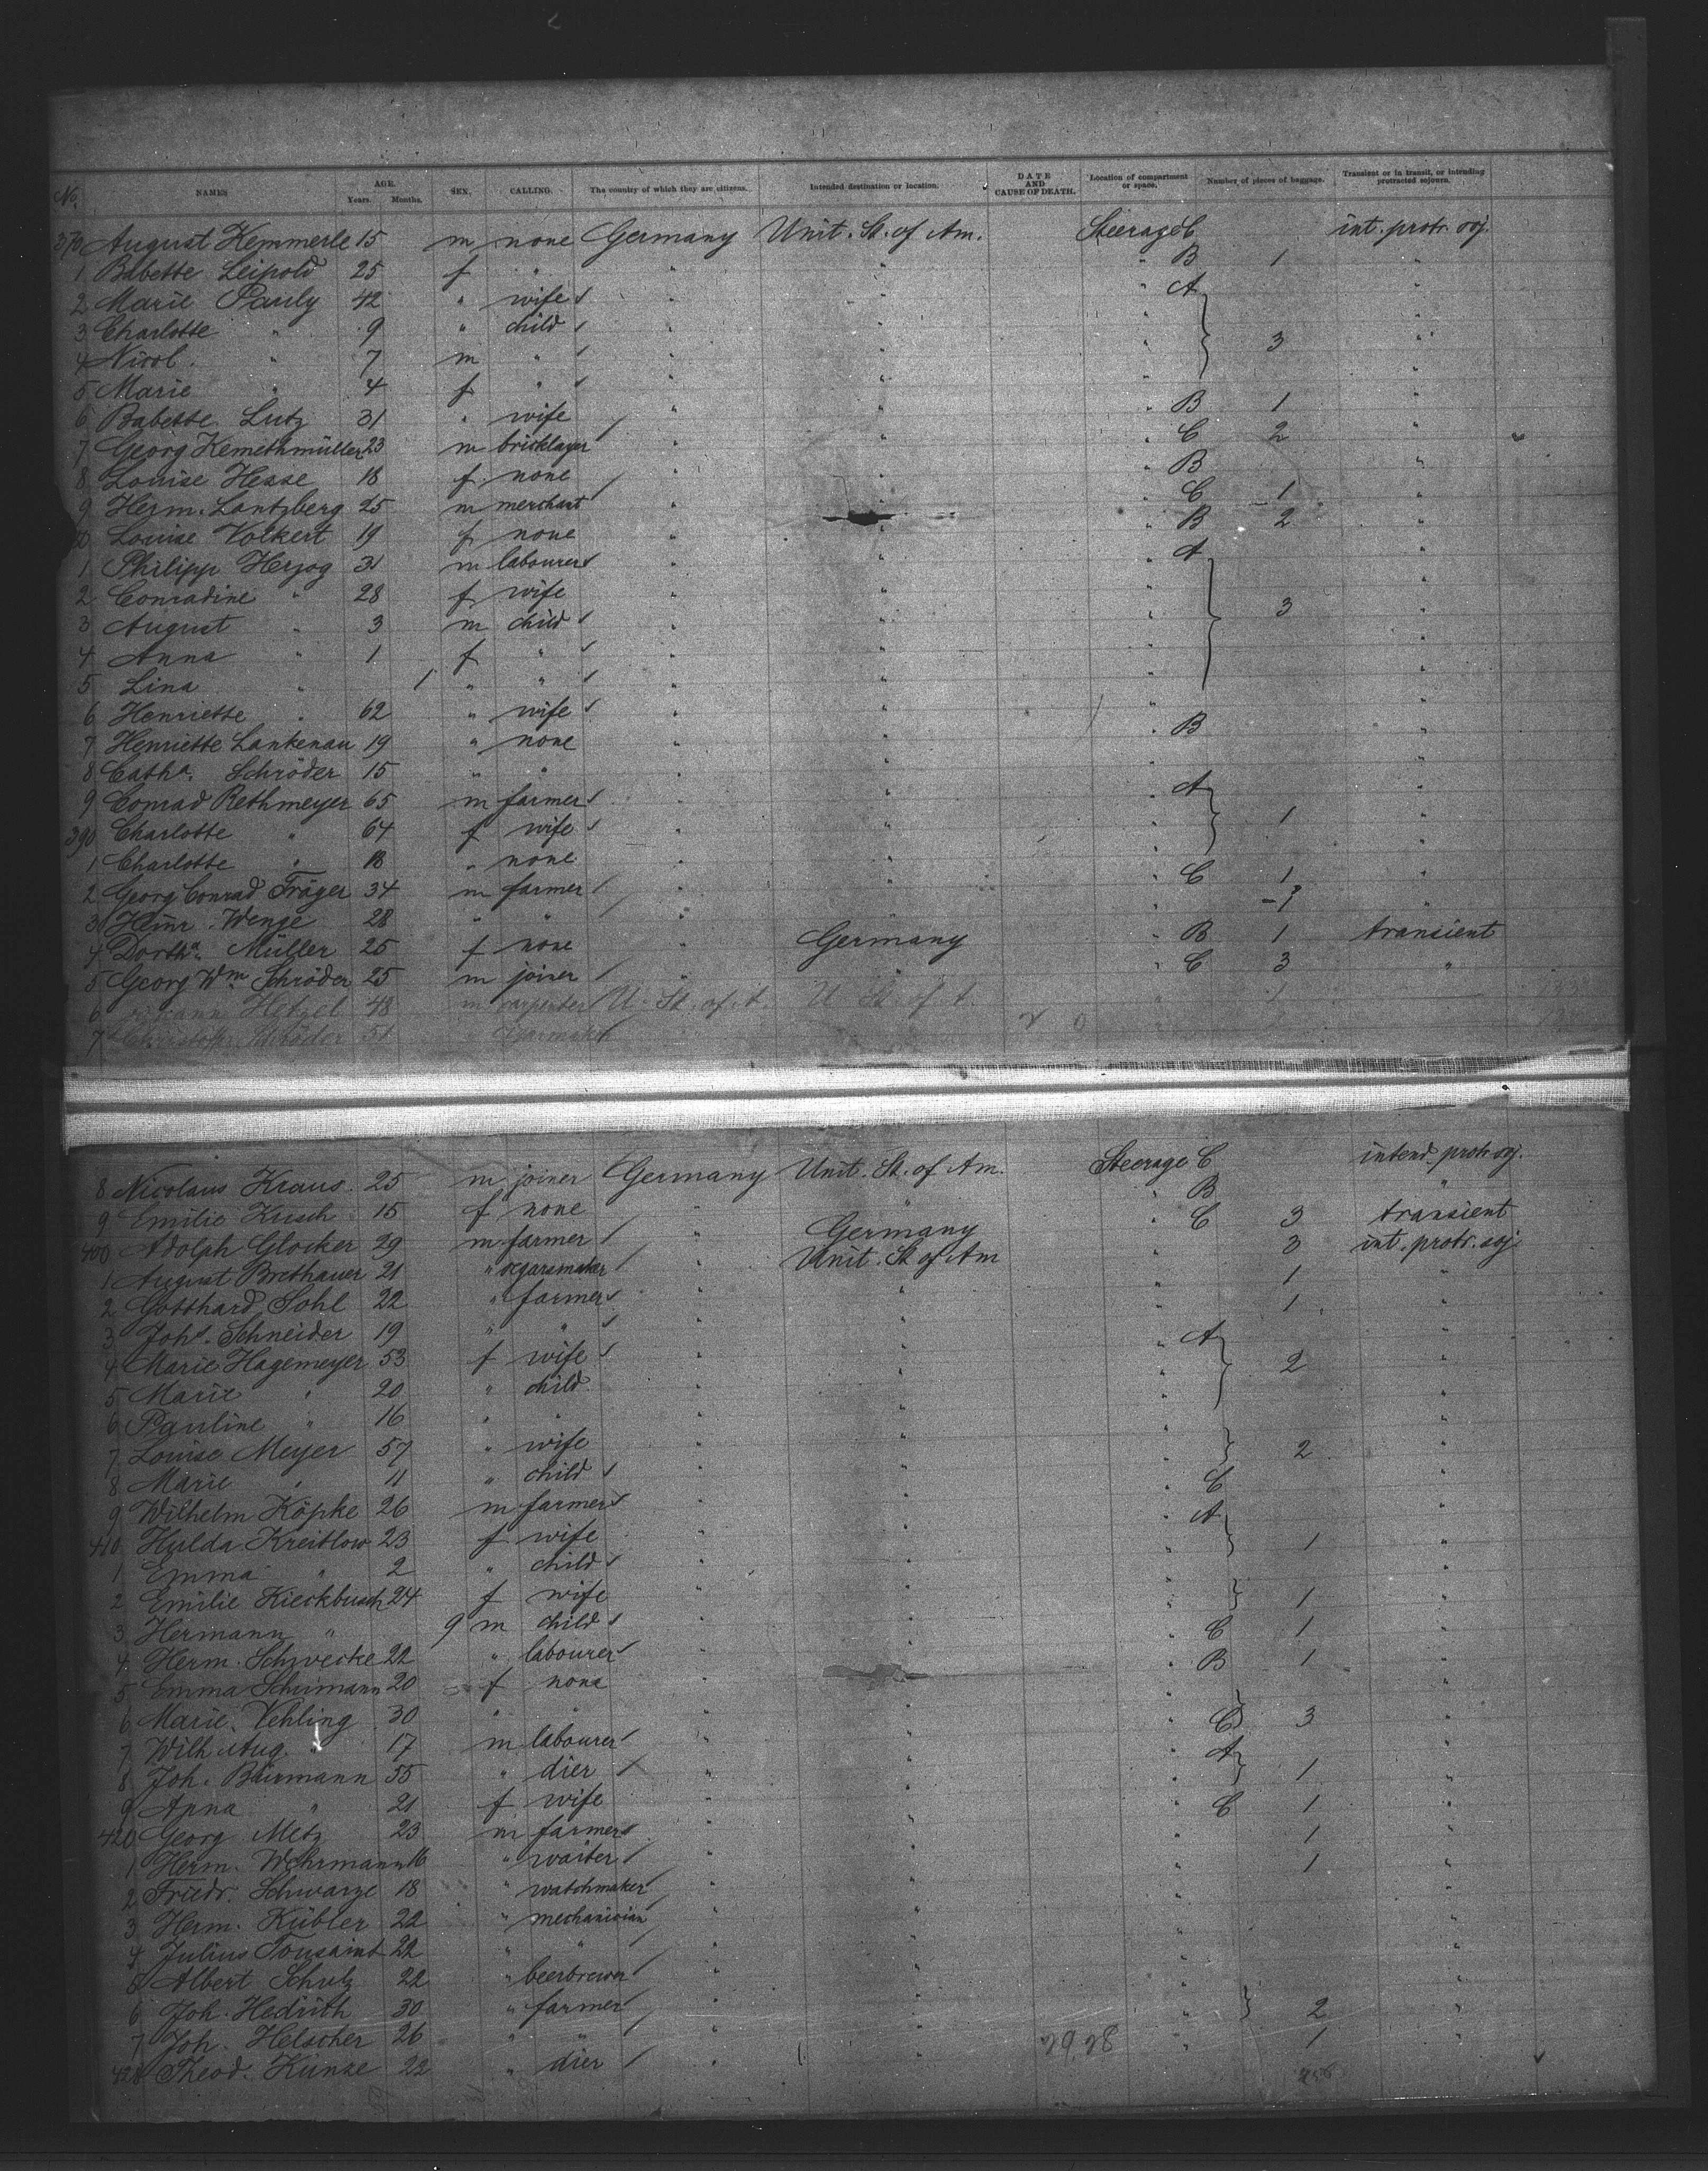 No. NAMES AGE. Years. Months. SEX. CALLING. The country of which they are citizens. Intended destination or location. DATE AND CAUSE OF DEATH. Location of compartment or space. Number of pieces of baggage. Transient or in transit, or intending protracted sojourn.
370 August Kemmerle 15 m none Germany Unit. St. of Am. Steerage C int. protr. soj.
1 Babette Leipold 25 f " " " " B 1 "
2 Marie Pauly 42 " wife " " " A "
3 Charlotte " 9 " child " " " "
4 Nicol. " 7 m " " " " 3 "
5 Marie " 4 f " " " " "
6 Babette Lutz 31 " wife " " " B 1 "
7 Georg Kemethmüller 23 m bricklayer " " " C 2 "
8 Louise Hesse 18 f none " " " B "
9 Herm. Lantzberg 25 m merchant " " " C 1 "
0 Louise Volkert 19 f none " " " B 2 "
1 Philipp Herzog 31 m labourer " " " A "
2 Conradine " 28 f wife " " " "
3 August " 3 m child " " " 3 "
4 Anna " 1 f " " " " "
5 Lina " 1 " " " " " "
6 Henriette " 62 " wife " " " "
7 Henriette Lankenau 19 " none " " " B "
8 Catha. Schröder 15 " " " " " "
9 Conrad Rethmeyer 65 m farmer " " " A "
390 Charlotte " 64 f wife " " " 1 "
1 Charlotte " 18 " none " " " "
2 Georg Conrad Träger 34 m farmer " " " C 1 "
3 Heinr. Wenge 28 " " " " " 1 "
4 Dortha. Müller 25 f none " Germany " B 1 transient
5 Georg Wm. Schröder 25 m joiner " " " C 3 "
6 Johann Hetzel 48 m carpenter U. St. of A. U. St. of A. " 1
7 Christoph Schröder 51 cigarmaker
8 Nicolaus Kraus 25 m joiner Germany Unit. St. of Am. Steerage C intend. protr. soj.
9 Emilie Kusch 15 f none " " " B "
400 Adolph Glocker 29 m farmer " Germany " C 3 transient
1 August Brethauer 21 " segarsmaker " Unit. St. of Am " 3 int. protr. soj
2 Gotthard Sohl 22 " farmer " " " 1 "
3 Johs. Schneider 19 " " " " " 1 "
4 Marie Hagemeyer 53 f wife " " " A "
5 Marie " 20 " child " " " 2 "
6 Pauline " 16 " " " " " "
7 Louise Meyer 57 " wife " " " 2 "
8 Marie " 11 " child " " " "
9 Wilhelm Köpke 26 m farmer " " " C "
410 Hulda Kreitlow 23 f wife " " " A "
1 Emma " 2 " child " " " 1 "
2 Emilie Kieckbusch 24 f wife " " " "
3 Hermann " 9 m child " " " 1 "
4 Herm. Schwecke 22 " labourer " " " C 1 "
5 Emma Schumann 20 f none " " " B 1 "
6 Marie Vehling 30 " " " " " "
7 Wilh. Aug. " 17 m labourer " " " C 3 "
8 Joh. Baurmann 55 " dier " " " A "
9 Anna " 21 f wife " " " 1 "
420 Georg Metz 23 m farmer " " " C 1 "
1 Herm. Wehrmann 16 " waiter " " " 1 "
2 Friedr. Schwarze 18 " watchmaker " " " 1 "
3 Herm. Kübler 22 " mechanician " " " "
4 Julius Tousaint 22 " " " " " "
5 Albert Schulz 22 " beerbrewer " " " "
6 Joh. Hedrith 30 " farmer " " " 2 "
7 Joh. Helscher 26 " " " " " 1 "
428 Theod. Kunze 22 " dier " " "